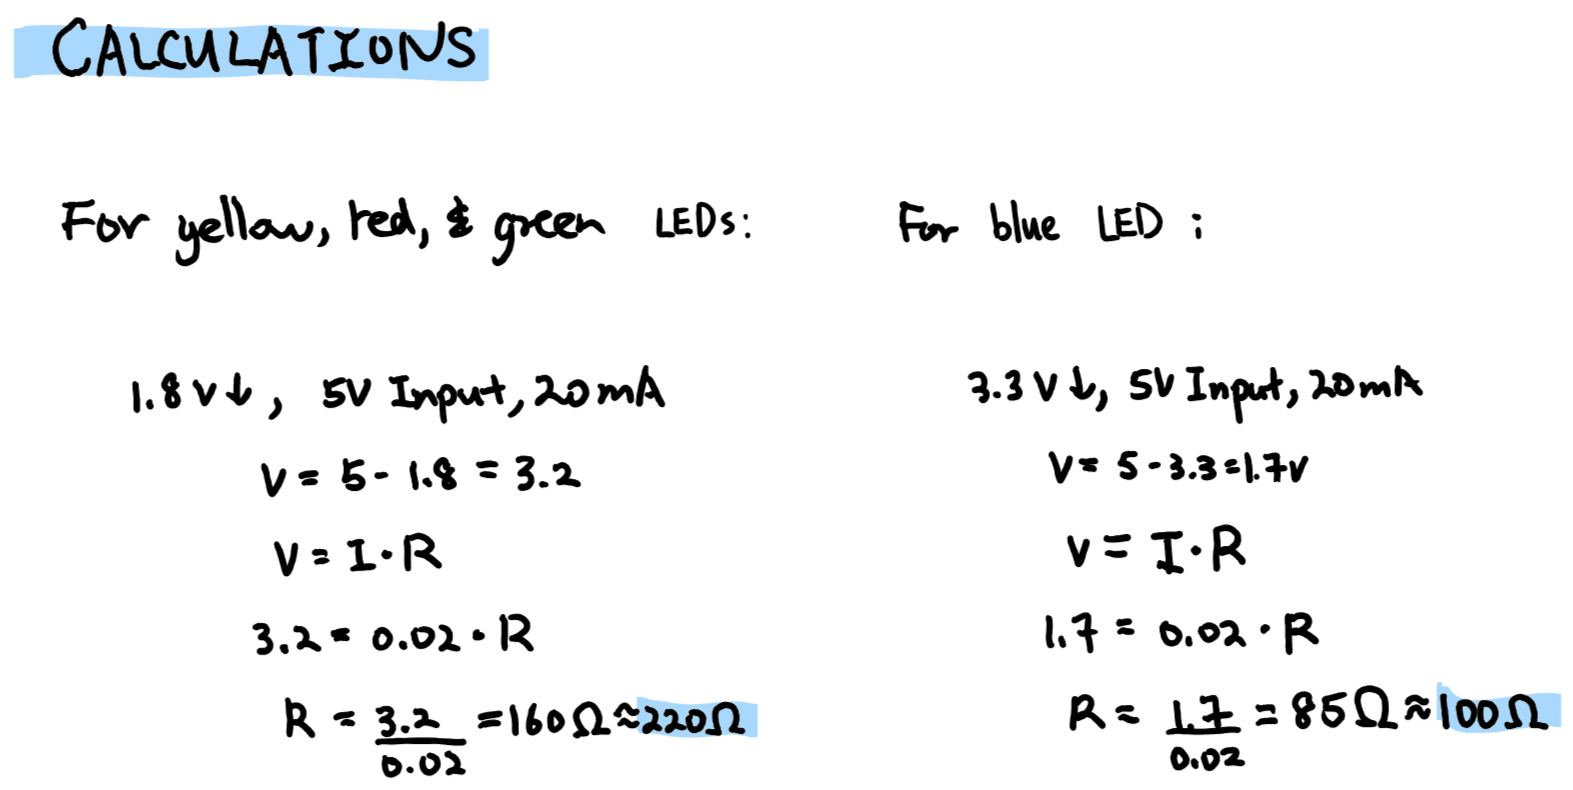 CALCULATIONS
For yellow, red, & green LEDs:
1.8 V↓, 5V Input, 20mA
V = 5 - 1.8 = 3.2
V = I·R
3.2 = 0.02 · R
R = 3.2/0.02 = 160Ω ≈ 220Ω
For blue LED ;
3.3 V↓, 5V Input, 20mA
V = 5 - 3.3 = 1.7V
V = I·R
1.7 = 0.02 · R
R = 1.7/0.02 = 85Ω ≈ 100Ω